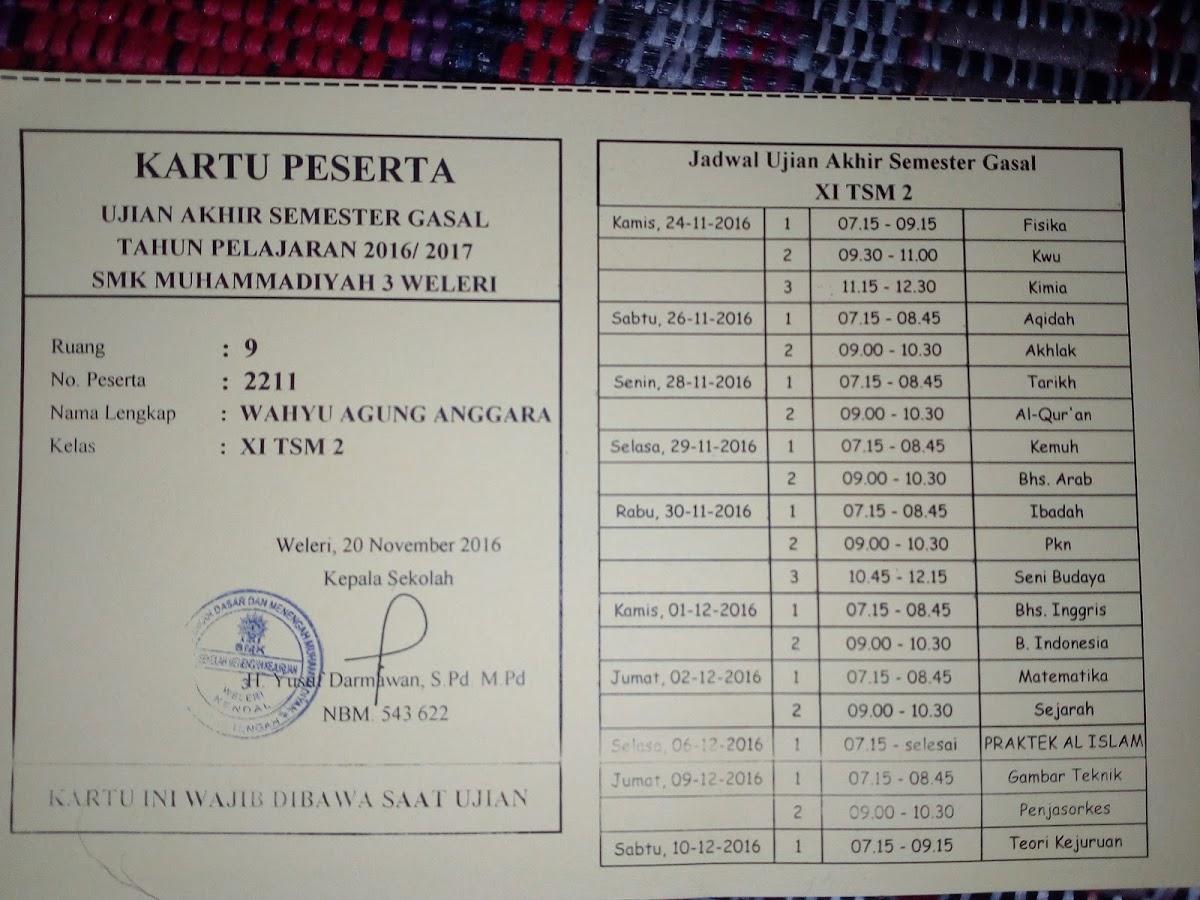 KARTU PESERTA
UJIAN AKHIR SEMESTER GASAL
TAHUN PELAJARAN 2016/ 2017
SMK MUHAMMADIYAH 3 WELERI
Ruang : 9
No. Peserta : 2211
Nama Lengkap : WAHYU AGUNG ANGGARA
Kelas : XI TSM 2
Weleri, 20 November 2016
Kepala Sekolah
DASAR DAN MENENGAH
SMK
SEKOLAH MENENGAH KEJURUAN
WELERI
KENDAL
H. Yusuf Darmawan, S.Pd. M.Pd
NBM. 543 622
KARTU INI WAJIB DIBAWA SAAT UJIAN
Jadwal Ujian Akhir Semester Gasal
XI TSM 2
Kamis, 24-11-2016 1 07.15 - 09.15 Fisika
2 09.30 - 11.00 Kwu
3 11.15 - 12.30 Kimia
Sabtu, 26-11-2016 1 07.15 - 08.45 Aqidah
2 09.00 - 10.30 Akhlak
Senin, 28-11-2016 1 07.15 - 08.45 Tarikh
2 09.00 - 10.30 Al-Qur'an
Selasa, 29-11-2016 1 07.15 - 08.45 Kemuh
2 09.00 - 10.30 Bhs. Arab
Rabu, 30-11-2016 1 07.15 - 08.45 Ibadah
2 09.00 - 10.30 Pkn
3 10.45 - 12.15 Seni Budaya
Kamis, 01-12-2016 1 07.15 - 08.45 Bhs. Inggris
2 09.00 - 10.30 B. Indonesia
Jumat, 02-12-2016 1 07.15 - 08.45 Matematika
2 09.00 - 10.30 Sejarah
Selasa, 06-12-2016 1 07.15 - selesai PRAKTEK AL ISLAM
Jumat, 09-12-2016 1 07.15 - 08.45 Gambar Teknik
2 09.00 - 10.30 Penjasorkes
Sabtu, 10-12-2016 1 07.15 - 09.15 Teori Kejuruan